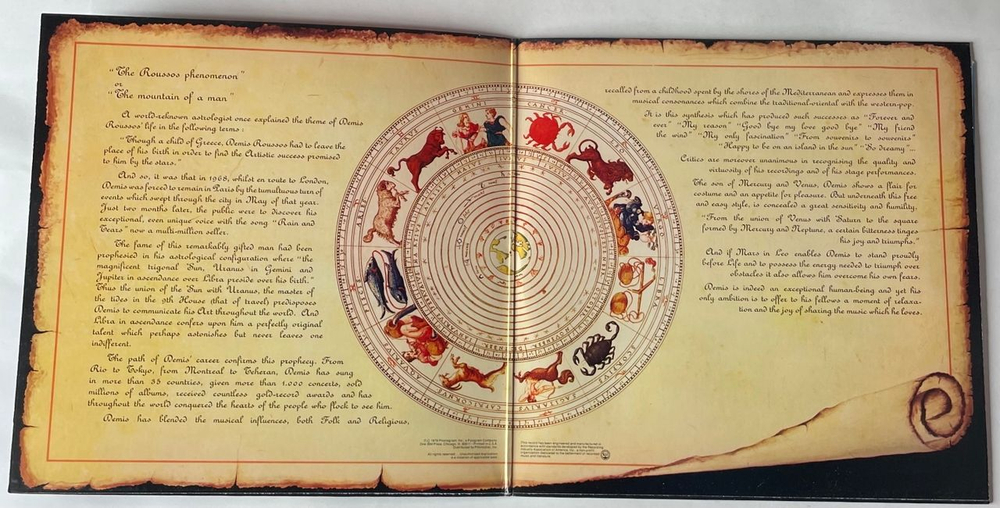 "The Roussos phenomenon"
or
"The mountain of a man"
A world-known astrologist once explained the theme of Demis
Roussos' life in the following terms :
"Though a child of Greece, Demis Roussos had to leave the
place of his birth in order to find the Artistic success promised
to him by the stars."
And so, it was that in 1968, whilst en route to London,
Demis was forced to remain in Paris by the tumultuous turn of
events which swept through the city in May of that year.
Just two months later, the public were to discover his
exceptional, even unique voice with the song "Rain and
Tears" now a multi-million seller.
The fame of this remarkably gifted man had been
prophesied in his astrological configuration where "the
magnificent trigonal Sun, Uranus in Gemini and
Jupiter in ascendance over Libra preside over his birth.
Thus the union of the Sun with Uranus, the master of
the tides in the 9th House (that of travel) predisposes
Demis to communicate his Art throughout the world. And
Libra in ascendance confers upon him a perfectly original
talent which perhaps astonishes but never leaves one
indifferent.
The path of Demis' career confirms this prophecy. From
Rio to Tokyo, from Montreal to Teheran, Demis has sung
in more than 55 countries, given more than 1.000 concerts, sold
millions of albums, received countless gold-record awards and has
throughout the world conquered the hearts of the people who flock to see him.
Demis has blended the musical influences, both Folk and Religious,
recalled from a childhood spent by the shores of the Mediterranean and expresses them in
musical consonances which combine the traditional-oriental with the western-pop.
It is this synthesis which has produced such successes as "Forever and
ever" "My reason" "Good bye my love good bye" "My friend
the wind" "My only fascination" "From souvenirs to souvenirs"
"Happy to be on an island in the sun" "So dreamy"...
Critics are moreover unanimous in recognising the quality and
virtuosity of his recordings and of his stage performances.
The son of Mercury and Venus, Demis shows a flair for
costume and an appetite for pleasure. But underneath this free
and easy style, is concealed a great sensitivity and humility,
"From the union of Venus with Saturn to the square
formed by Mercury and Neptune, a certain bitterness tinges
his joy and triumphs."
And if Mars in Leo enables Demis to stand proudly
before Life and to possess the energy needed to triumph over
obstacles it also allows him overcome his own fears.
Demis is indeed an exceptional human-being and yet his
only ambition is to offer to his fellows a moment of relaxa-
tion and the joy of sharing the music which he loves.